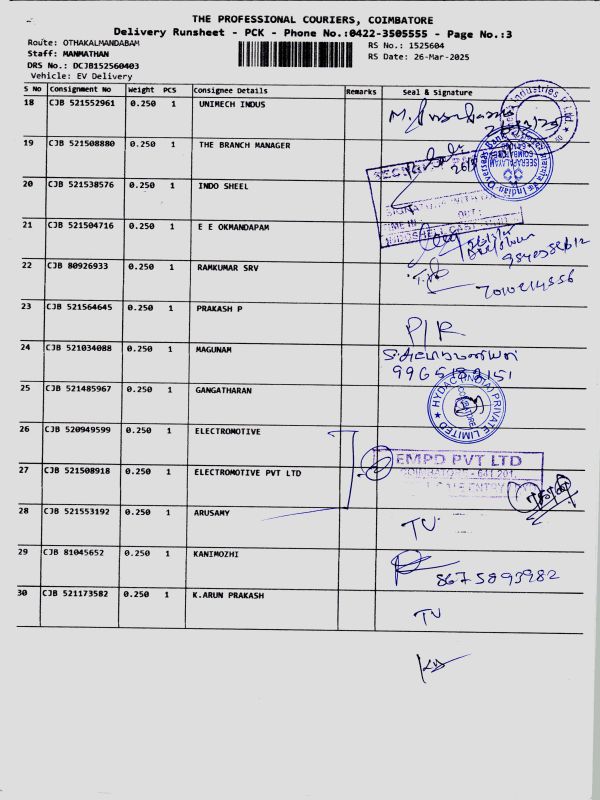 THE PROFESSIONAL COURIERS, COIMBATORE
Delivery Runsheet - PCK - Phone No.:0422-3505555 - Page No.:3
Route: OTHAKALMANDABAM
RS No.: 1525604
Staff: MANMATHAN
RS Date: 26-Mar-2025
DRS No.: DCJB152560403
Vehicle: EV Delivery
S No Consignment No Weight PCS Consignee Details Remarks Seal & Signature
18 CJB 521552961 0.250 1 UNIMECH INDUS
19 CJB 521508880 0.250 1 THE BRANCH MANAGER
20 CJB 521538576 0.250 1 INDO SHEEL
21 CJB 521504716 0.250 1 E E OKMANDAPAM
22 CJB 80926933 0.250 1 RAMKUMAR SRV
7010214556
23 CJB 521564645 0.250 1 PRAKASH P
P/R
24 CJB 521034088 0.250 1 MAGUNAM
9965182151
25 CJB 521485967 0.250 1 GANGATHARAN
HYDAC (INDIA) PRIVATE LIMITED
COIMBATORE
26 CJB 520949599 0.250 1 ELECTROMOTIVE
EMPD PVT LTD
COIMBATORE - 641 201.
27 CJB 521508918 0.250 1 ELECTROMOTIVE PVT LTD
28 CJB 521553192 0.250 1 ARUSAMY
TV
29 CJB 81045652 0.250 1 KANIMOZHI
8675893982
30 CJB 521173582 0.250 1 K.ARUN PRAKASH
TV